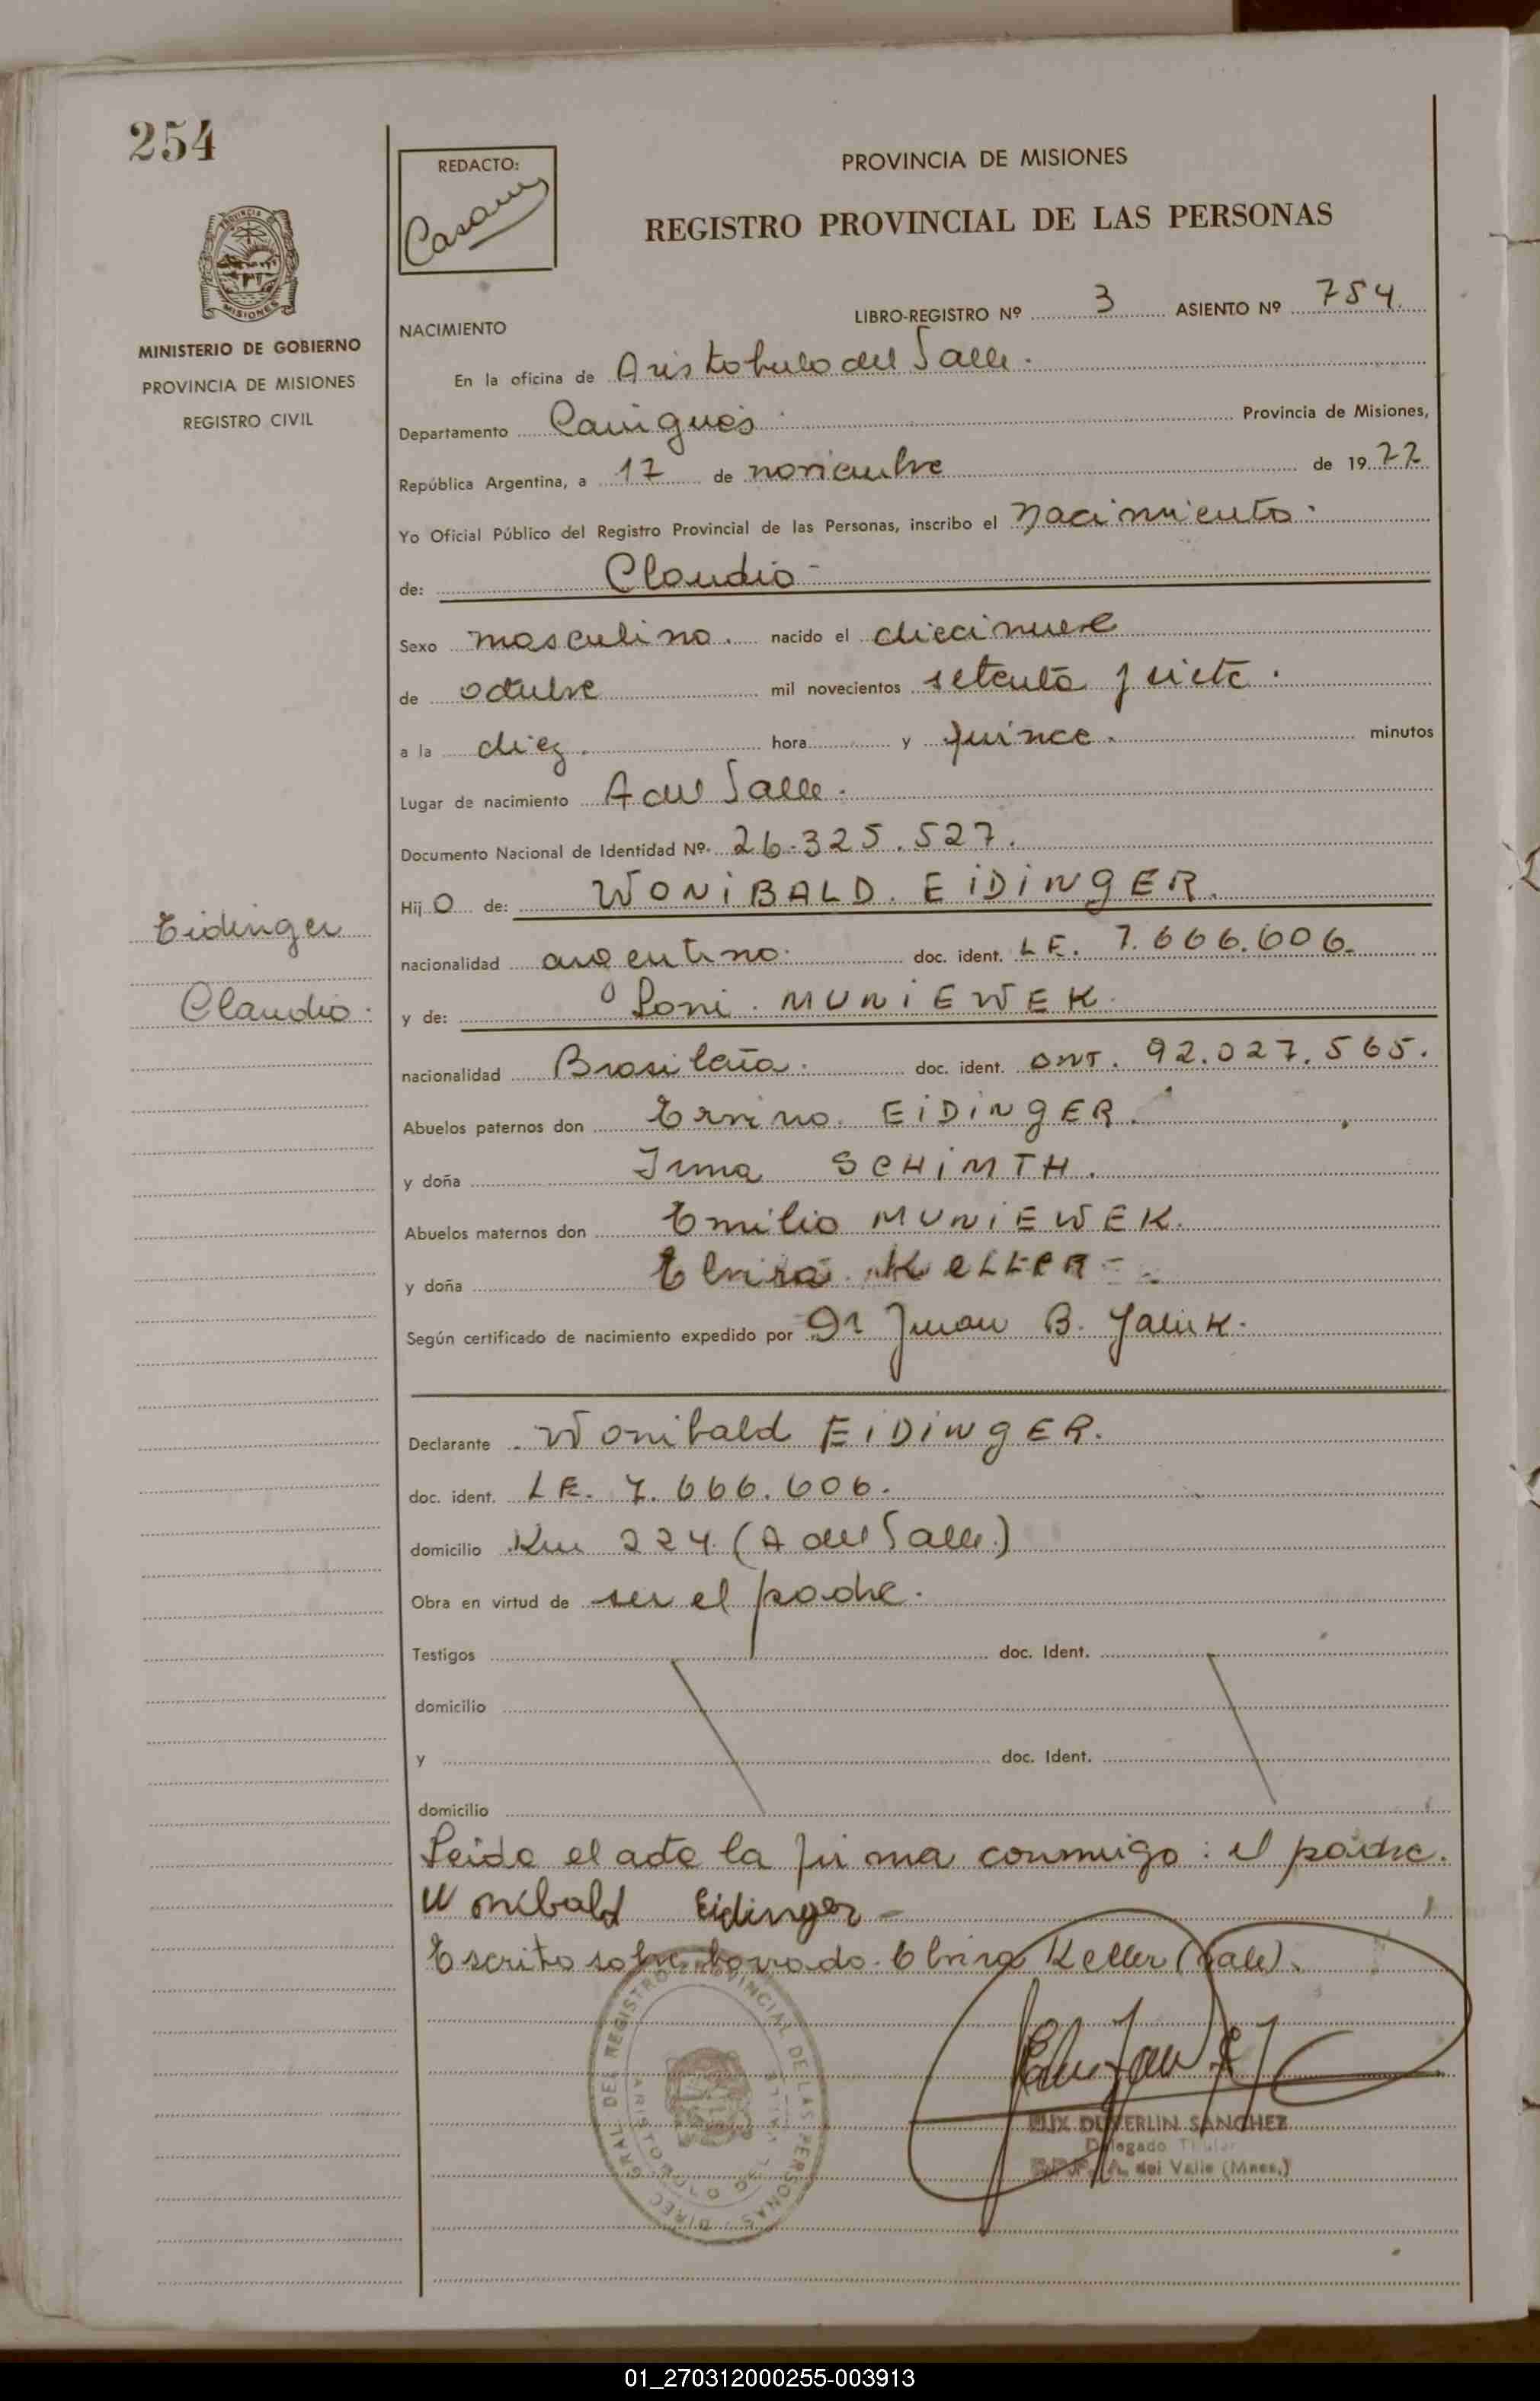 254
REDACTO:
PROVINCIA DE MISIONES
REGISTRO PROVINCIAL DE LAS PERSONAS
MISIONES
MINISTERIO DE GOBIERNO
PROVINCIA DE MISIONES
REGISTRO CIVIL
LIBRO-REGISTRO Nº 3 ASIENTO Nº 754.
NACIMIENTO
En la oficina de Aristobulo del Valle.
Departamento Cainguás Provincia de Misiones,
República Argentina, a 17 de noviembre de 1977
Yo Oficial Público del Registro Provincial de las Personas, inscribo el Nacimiento.
de: Claudio -
Sexo masculino. nacido el diecinueve
de octubre mil novecientos setenta y siete.
a la diez. hora y quince. minutos
Lugar de nacimiento A del Valle.
Documento Nacional de Identidad Nº. 26.325.527.
Hij O de: WONiBALD. EiDiNgER.
Eidinger
nacionalidad argentino. doc. ident. LE. 7.666.606.
Claudio.
y de: Loni. MUNiEWEK.
nacionalidad Brasileña. doc. ident. DNI. 92.027.565.
Abuelos paternos don Ervino. EiDiNgER.
y doña Irma SCHiMTH.
Abuelos maternos don Emilio MUNiEWEK.
y doña Elvira KELLER -
Según certificado de nacimiento expedido por Dr Juan B.
Declarante Wonibald EiDiNgER.
doc. ident. LE. 7.666.606.
domicilio Km 224 (A del Valle)
Obra en virtud de ser el padre.
Testigos doc. Ident.
domicilio
y doc. Ident.
domicilio
Leida el acta la firma conmigo: el padre.
Wonibald Eidinger -
Escrito sobre borrado. Elvira Keller (vale).
DIREC. GRAL. DEL REGISTRO PROVINCIAL DE LAS PERSONAS
ARISTOBULO DEL VALLE
SANCHEZ
Delegado Titular
A. del Valle (Mnes.)
01_270312000255-003913